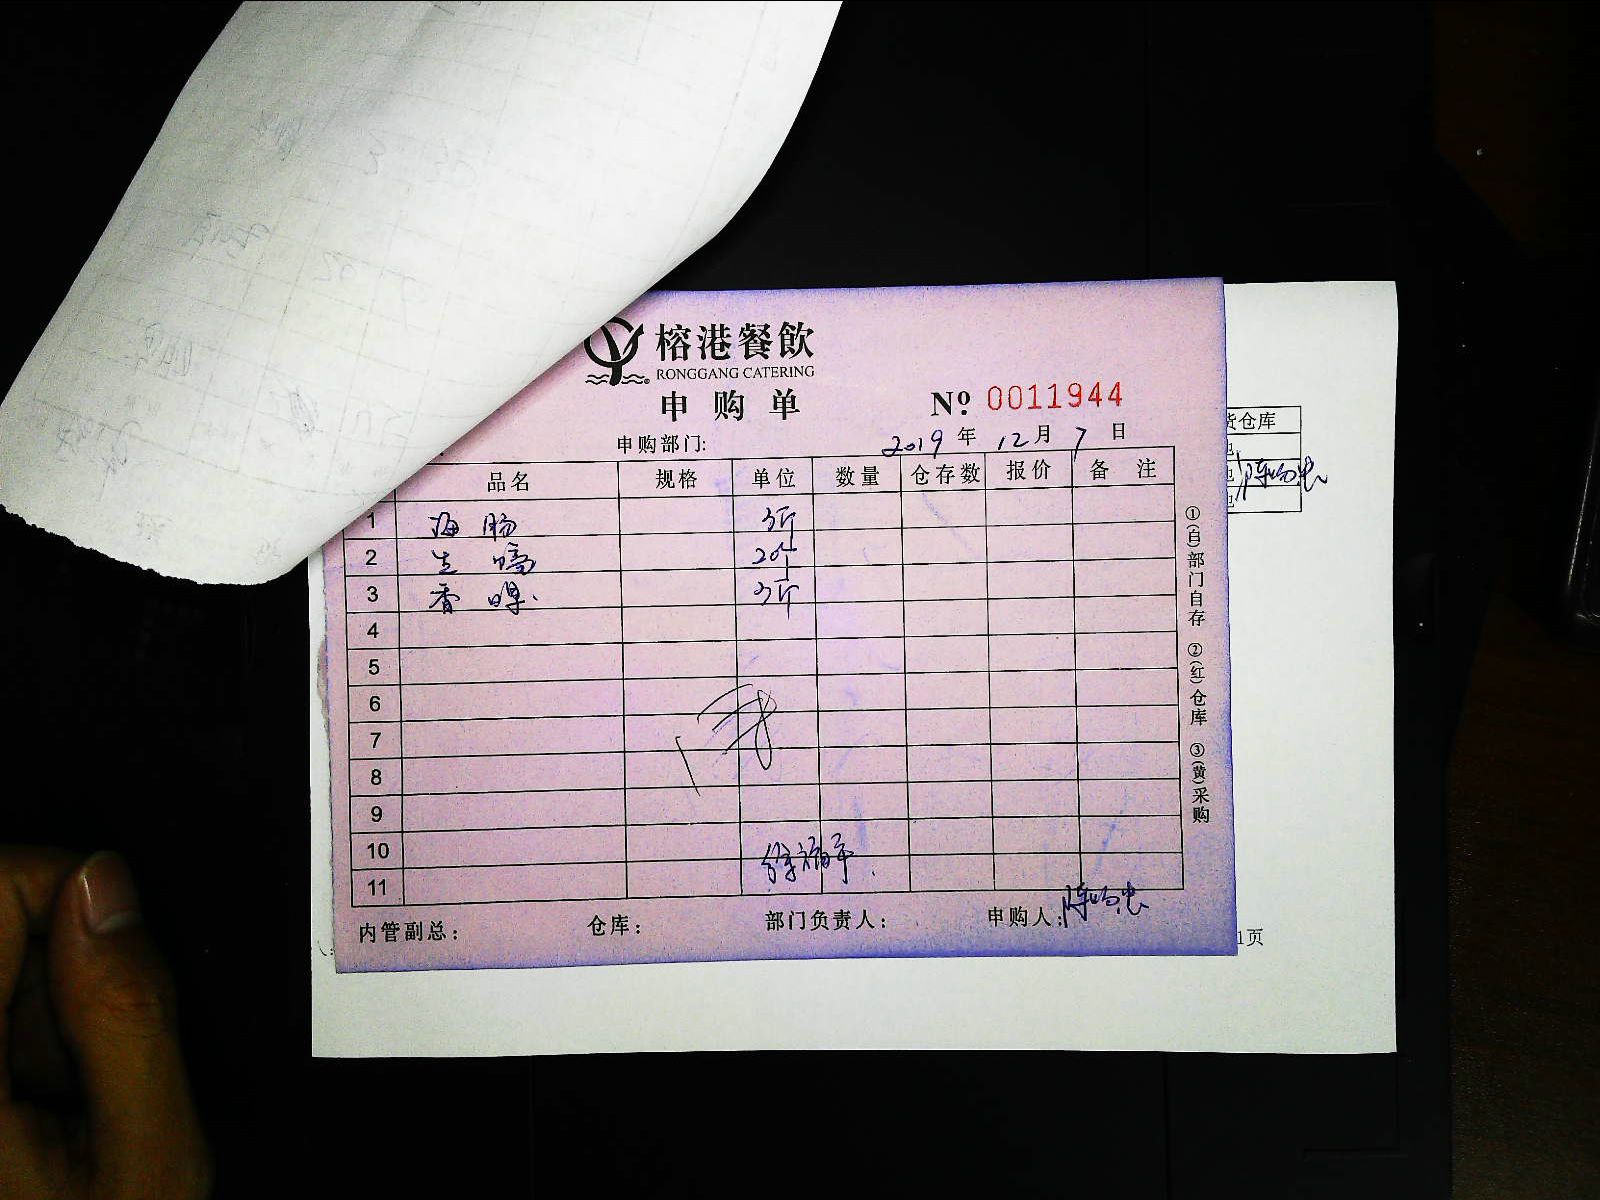 榕港餐飲
RONGGANG CATERING
申购单
№ 0011944
申购部门:
2019 年 12 月 7 日
品名 规格 单位 数量 仓存数 报价 备 注
1 海肠 3斤
2 生蠔 20个
3 香螺 3斤
4
5
6
7
8
9
10
11
徐福平
内管副总: 仓库: 部门负责人: 申购人:
①(白)部门自存 ②(红)仓库 ③(黄)采购
货仓库
1页